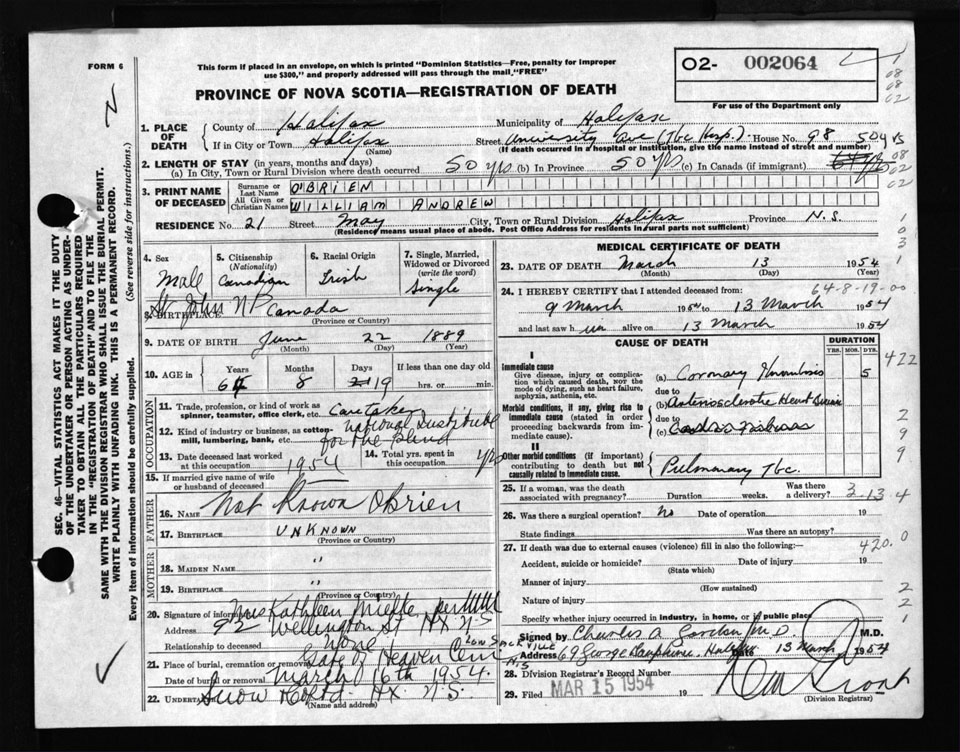 FORM 6
This form if placed in an envelope, on which is printed "Dominion Statistics—Free, penalty for improper
use $300," and properly addressed will pass through the mail, "FREE"
O2- 002064
For use of the Department only
PROVINCE OF NOVA SCOTIA—REGISTRATION OF DEATH
1. PLACE OF DEATH
County of Halifax Municipality of Halifax
If in City or Town Halifax (Name) Street University Ave (Tbc Hosp.) House No. 98
(If death occurred in a hospital or institution, give the name instead of street and number)
2. LENGTH OF STAY (in years, months and days)
(a) In City, Town or Rural Division where death occurred 50 yrs (b) In Province 50 yrs (c) In Canada (if immigrant)
3. PRINT NAME OF DECEASED
Surname or Last Name O'BRIEN
All Given or Christian Names WILLIAM ANDREW
RESIDENCE No. 21 Street May City, Town or Rural Division Halifax Province N.S.
(Residence means usual place of abode. Post Office Address for residents in rural parts not sufficient)
4. Sex Male
5. Citizenship (Nationality) Canadian
6. Racial Origin Irish
7. Single, Married, Widowed or Divorced (write the word) Single
8. BIRTHPLACE St John Canada
(Province or Country)
9. DATE OF BIRTH June 22 1889
(Month) (Day) (Year)
10. AGE in Years 64 Months 8 Days 19 If less than one day old
hrs. or min.
OCCUPATION
11. Trade, profession, or kind of work as spinner, teamster, office clerk, etc. Caretaker
12. Kind of industry or business, as cotton-mill, lumbering, bank, etc. National Institute
for the Blind
13. Date deceased last worked at this occupation 1954
14. Total yrs. spent in this occupation yrs
15. If married give name of wife or husband of deceased
FATHER
16. NAME Not Known O'Brien
17. BIRTHPLACE UNKNOWN
(Province or Country)
MOTHER
18. MAIDEN NAME "
19. BIRTHPLACE "
(Province or Country)
20. Signature of informant Mrs Kathleen
Address 92 Wellington St HX N.S
Relationship to deceased None
21. Place of burial, cremation or removal Gate of Heaven Cem Low Sackville N.S
Date of burial or removal March 16th 1954.
22. UNDERTAKER Snow HX N.S.
(Name and address)
MEDICAL CERTIFICATE OF DEATH
23. DATE OF DEATH March 13 1954
(Month) (Day) (Year)
64-8-19-00
24. I HEREBY CERTIFY that I attended deceased from:
9 March 1954 to 13 March 1954
and last saw h im alive on 13 March 1954
CAUSE OF DEATH
DURATION
YRS. MOS. DYS.
I
Immediate cause
Give disease, injury or complication which caused death, not the mode of dying, such as heart failure, asphyxia, asthenia, etc.
(a) Coronary Thrombosis 5
due to
Morbid conditions, if any, giving rise to immediate cause (stated in order proceeding backwards from immediate cause).
(b) Arteriosclerotic Heart Disease
due to
(c) Cardiac Fibrosis
II
Other morbid conditions (if important) contributing to death but not causally related to immediate cause.
Pulmonary Tbc.
25. If a woman, was the death associated with pregnancy? Duration weeks. Was there a delivery?
26. Was there a surgical operation? No Date of operation 19
State findings Was there an autopsy?
27. If death was due to external causes (violence) fill in also the following:—
Accident, suicide or homicide? Date of injury 19
(State which)
Manner of injury
(How sustained)
Nature of injury
Specify whether injury occurred in industry, in home, or in public place
Signed by Charles A. Gordon M.D. M.D.
Address 69 George Dauphinee, Halifax Date 13 March 1954
28. Division Registrar's Record Number
29. Filed MAR 15 1954 19
(Division Registrar)
422
2
9
9
3-13-4
420.0
2
2
1
SEC. 46—VITAL STATISTICS ACT MAKES IT THE DUTY
OF THE UNDERTAKER OR PERSON ACTING AS UNDER-
TAKER TO OBTAIN ALL THE PARTICULARS REQUIRED
IN THE "REGISTRATION OF DEATH" AND TO FILE THE
SAME WITH THE DIVISION REGISTRAR WHO SHALL ISSUE THE BURIAL PERMIT.
WRITE PLAINLY WITH UNFADING INK. THIS IS A PERMANENT RECORD.
Every item of information should be carefully supplied. (See reverse side for instructions.)